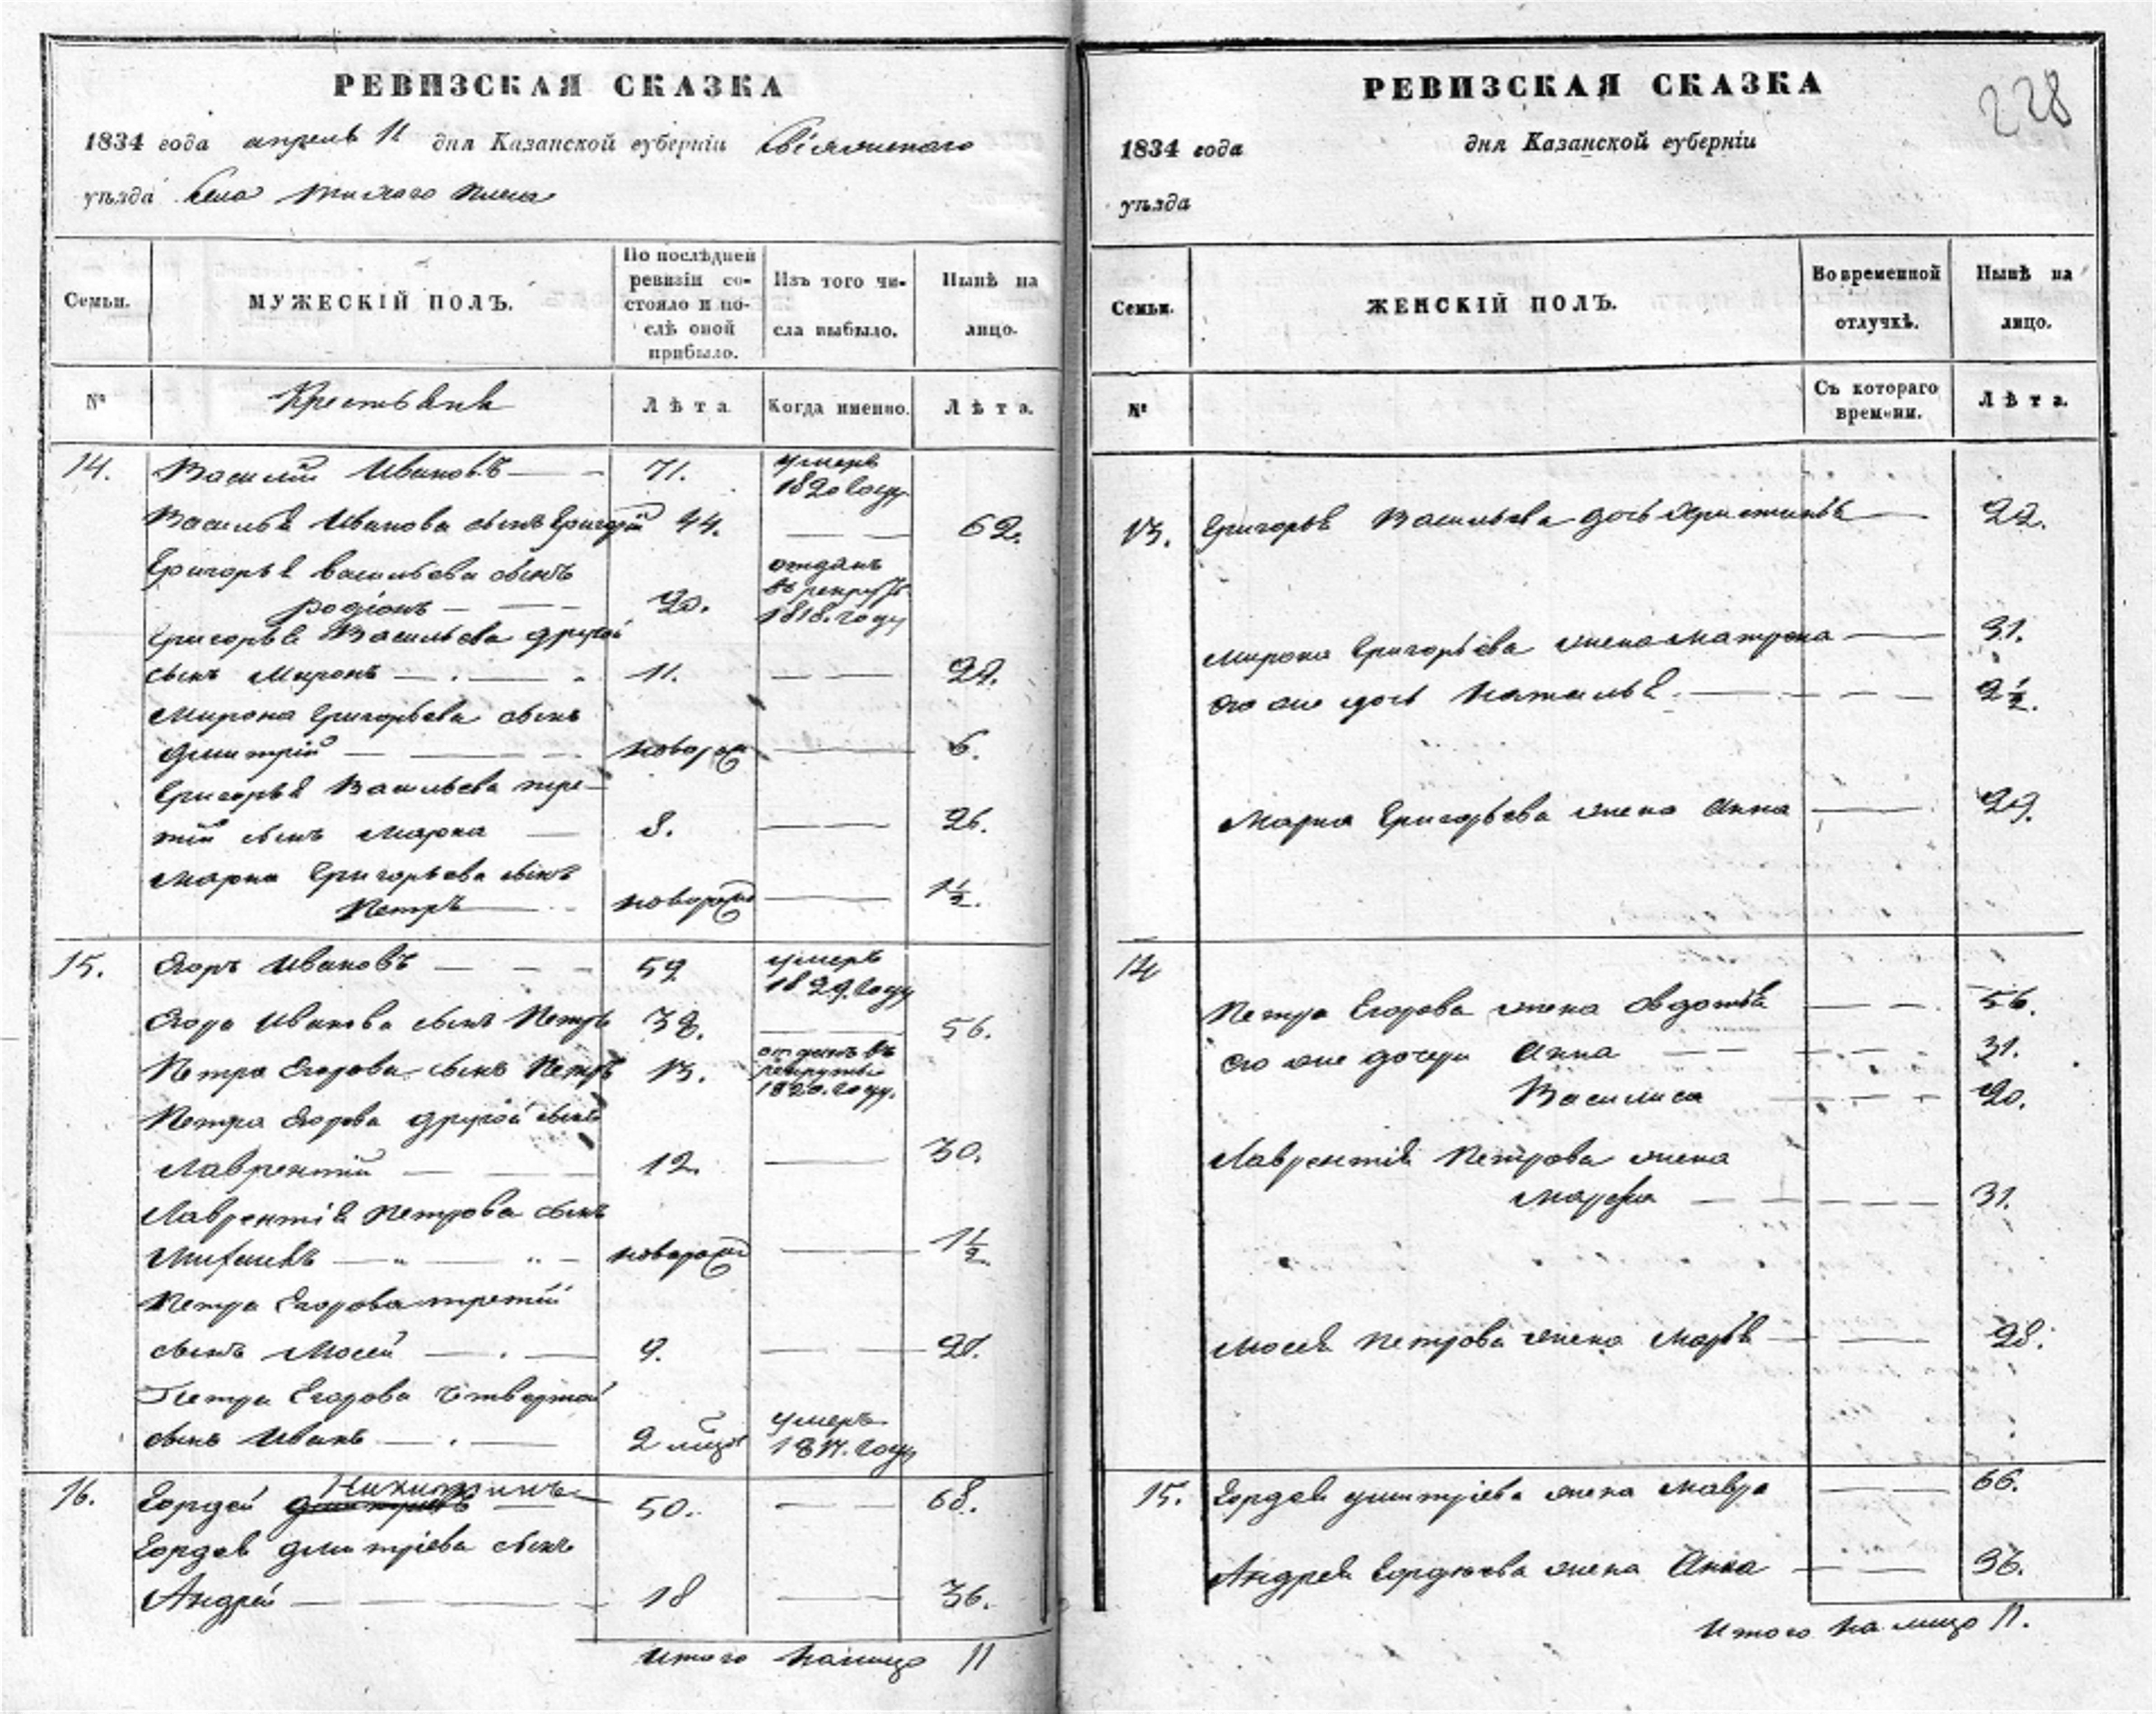 РЕВИЗСКАЯ СКАЗКА
1834 года апреля 11 дня Казанской губерніи Свіяжскаго
уѣзда села Тихаго Плеса
Семьи.
МУЖЕСКІЙ ПОЛЪ.
По послѣдней
ревизіи со-
стояло и по-
слѣ оной
прибыло.
Изъ того чи-
сла выбыло.
Нынѣ на
лицо.
№
Крестьяне
Лѣта
Когда именно.
Лѣта.
14. Василій Ивановъ 71. умеръ
1820 году
Василья Иванова сынъ Григорій 44. 62.
Григорья Васильева сынъ отданъ
Родіонъ 20. въ рекруты
1818. году
Григорья Васильева другой
сынъ Миронъ 11. 29.
Мирона Григорьева сынъ
Дмитрій новорож 6.
Григорья Васильева тре-
тій сынъ Марка 8. 26.
Марка Григорьева сынъ
Петръ новорож 1½.
15. Егоръ Ивановъ 59 умеръ
1829. году
Егора Иванова сынъ Петръ 38. 56.
Петра Егорова сынъ Петръ 13. отданъ въ
рекруты
1820. году.
Петра Егорова другой сынъ
Лаврентій 12. 30.
Лаврентія Петрова сынъ
новорож 1½.
Петра Егорова третій
сынъ Мосей 9. 27.
Петра Егорова четвертой
сынъ Иванъ 2 умеръ
1817. году
16. Гордей Дмитріевъ Никитинъ 50. 68.
Гордея Дмитріева сынъ
Андрей 18 36.
Итого налицо 11
РЕВИЗСКАЯ СКАЗКА
228
1834 года дня Казанской губерніи
уѣзда
Семьи.
ЖЕНСКІЙ ПОЛЪ.
Во временной
отлучкѣ.
Нынѣ на
лицо.
№
Съ котораго
времени.
Лѣта.
13. Григорья Васильева дочь 22.
Мирона Григорьева жена Матрона 31.
его же дочь Наталья 2½.
Марка Григорьева жена Анна 29.
14
Петра Егорова жена Овдотья 56.
его же дочери Анна 31.
Василиса 20.
Лаврентія Петрова жена
Марѳа 31.
Мосея Петрова жена Марья 28.
15. Гордея Дмитріева жена Мавра 66.
Андрея Гордѣева жена Анна 36.
Итого на лицо 11.